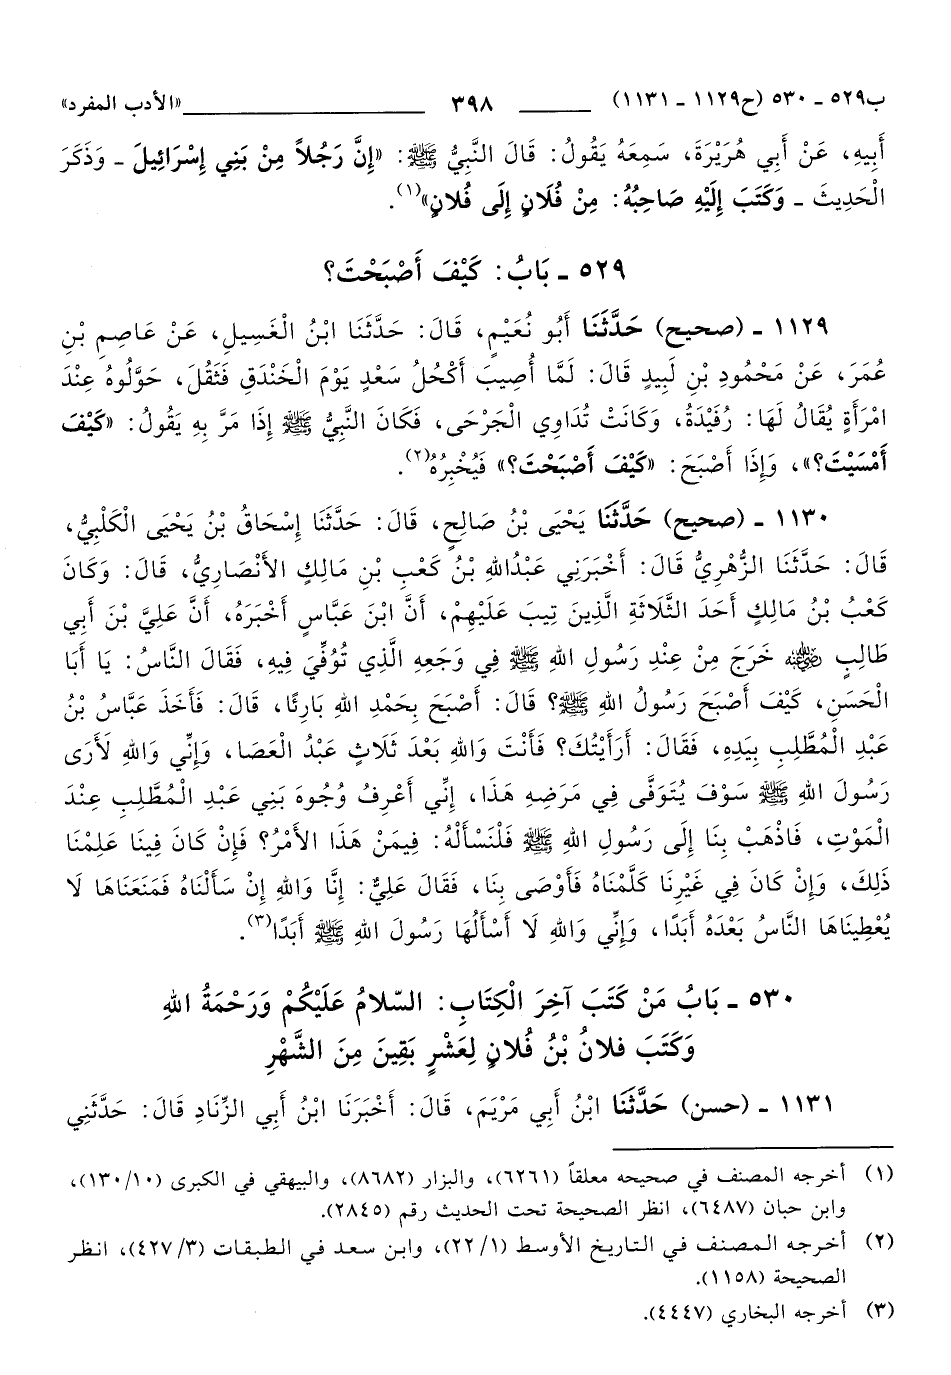 ب٥٢٩ ـ ٥٣٠ (ح١١٢٩ ـ ١١٣١) ٣٩٨ «الأدب المفرد»
أَبِيهِ، عَنْ أَبِي هُرَيْرَةَ، سَمِعَهُ يَقُولُ: قَالَ النَّبِيُّ ﷺ: «إِنَّ رَجُلاً مِنْ بَنِي إِسْرَائِيلَ ـ وَذَكَرَ
الْحَدِيثَ ـ وَكَتَبَ إِلَيْهِ صَاحِبُهُ: مِنْ فُلَانٍ إِلَى فُلَانٍ»(١).
٥٢٩ ـ بَابُ: كَيْفَ أَصْبَحْتَ؟
١١٢٩ ـ (صحيح) حَدَّثَنَا أَبُو نُعَيْمٍ، قَالَ: حَدَّثَنَا ابْنُ الْغَسِيلِ، عَنْ عَاصِمِ بْنِ
عُمَرَ، عَنْ مَحْمُودِ بْنِ لَبِيدٍ قَالَ: لَمَّا أُصِيبَ أَكْحُلُ سَعْدٍ يَوْمَ الْخَنْدَقِ فَثَقُلَ، حَوَّلُوهُ عِنْدَ
امْرَأَةٍ يُقَالُ لَهَا: رُفَيْدَةُ، وَكَانَتْ تُدَاوِي الْجَرْحَى، فَكَانَ النَّبِيُّ ﷺ إِذَا مَرَّ بِهِ يَقُولُ: «كَيْفَ
أَمْسَيْتَ؟»، وَإِذَا أَصْبَحَ: «كَيْفَ أَصْبَحْتَ؟» فَيُخْبِرُهُ(٢).
١١٣٠ ـ (صحيح) حَدَّثَنَا يَحْيَى بْنُ صَالِحٍ، قَالَ: حَدَّثَنَا إِسْحَاقُ بْنُ يَحْيَى الْكَلْبِيُّ،
قَالَ: حَدَّثَنَا الزُّهْرِيُّ قَالَ: أَخْبَرَنِي عَبْدُاللهِ بْنُ كَعْبِ بْنِ مَالِكٍ الأَنْصَارِيُّ، قَالَ: وَكَانَ
كَعْبُ بْنُ مَالِكٍ أَحَدَ الثَّلَاثَةِ الَّذِينَ تِيبَ عَلَيْهِمْ، أَنَّ ابْنَ عَبَّاسٍ أَخْبَرَهُ، أَنَّ عَلِيَّ بْنَ أَبِي
طَالِبٍ رضي الله عنه خَرَجَ مِنْ عِنْدِ رَسُولِ اللهِ ﷺ فِي وَجَعِهِ الَّذِي تُوُفِّيَ فِيهِ، فَقَالَ النَّاسُ: يَا أَبَا
الْحَسَنِ، كَيْفَ أَصْبَحَ رَسُولُ اللهِ ﷺ؟ قَالَ: أَصْبَحَ بِحَمْدِ اللهِ بَارِئًا، قَالَ: فَأَخَذَ عَبَّاسُ بْنُ
عَبْدِ الْمُطَّلِبِ بِيَدِهِ، فَقَالَ: أَرَأَيْتُكَ؟ فَأَنْتَ وَاللهِ بَعْدَ ثَلَاثٍ عَبْدُ الْعَصَا، وَإِنِّي وَاللهِ لَأَرَى
رَسُولَ اللهِ ﷺ سَوْفَ يُتَوَفَّى فِي مَرَضِهِ هَذَا، إِنِّي أَعْرِفُ وُجُوهَ بَنِي عَبْدِ الْمُطَّلِبِ عِنْدَ
الْمَوْتِ، فَاذْهَبْ بِنَا إِلَى رَسُولِ اللهِ ﷺ فَلْنَسْأَلْهُ: فِيمَنْ هَذَا الأَمْرُ؟ فَإِنْ كَانَ فِينَا عَلِمْنَا
ذَلِكَ، وَإِنْ كَانَ فِي غَيْرِنَا كَلَّمْنَاهُ فَأَوْصَى بِنَا، فَقَالَ عَلِيٌّ: إِنَّا وَاللهِ إِنْ سَأَلْنَاهُ فَمَنَعَنَاهَا لَا
يُعْطِينَاهَا النَّاسُ بَعْدَهُ أَبَدًا، وَإِنِّي وَاللهِ لَا أَسْأَلُهَا رَسُولَ اللهِ ﷺ أَبَدًا(٣).
٥٣٠ ـ بَابُ مَنْ كَتَبَ آخِرَ الْكِتَابِ: السّلَامُ عَلَيْكُمْ وَرَحْمَةُ اللهِ
وَكَتَبَ فلانُ بْنُ فُلانٍ لِعَشْرٍ بَقِينَ مِنَ الشَّهْرِ
١١٣١ ـ (حسن) حَدَّثَنَا ابْنُ أَبِي مَرْيَمَ، قَالَ: أَخْبَرَنَا ابْنُ أَبِي الزِّنَادِ قَالَ: حَدَّثَنِي
(١) أخرجه المصنف في صحيحه معلقاً (٦٢٦١)، والبزار (٨٦٨٢)، والبيهقي في الكبرى (١٣٠/١٠)،
وابن حبان (٦٤٨٧)، انظر الصحيحة تحت الحديث رقم (٢٨٤٥).
(٢) أخرجه المصنف في التاريخ الأوسط (٢٢/١)، وابن سعد في الطبقات (٤٢٧/٣)، انظر
الصحيحة (١١٥٨).
(٣) أخرجه البخاري (٤٤٤٧).